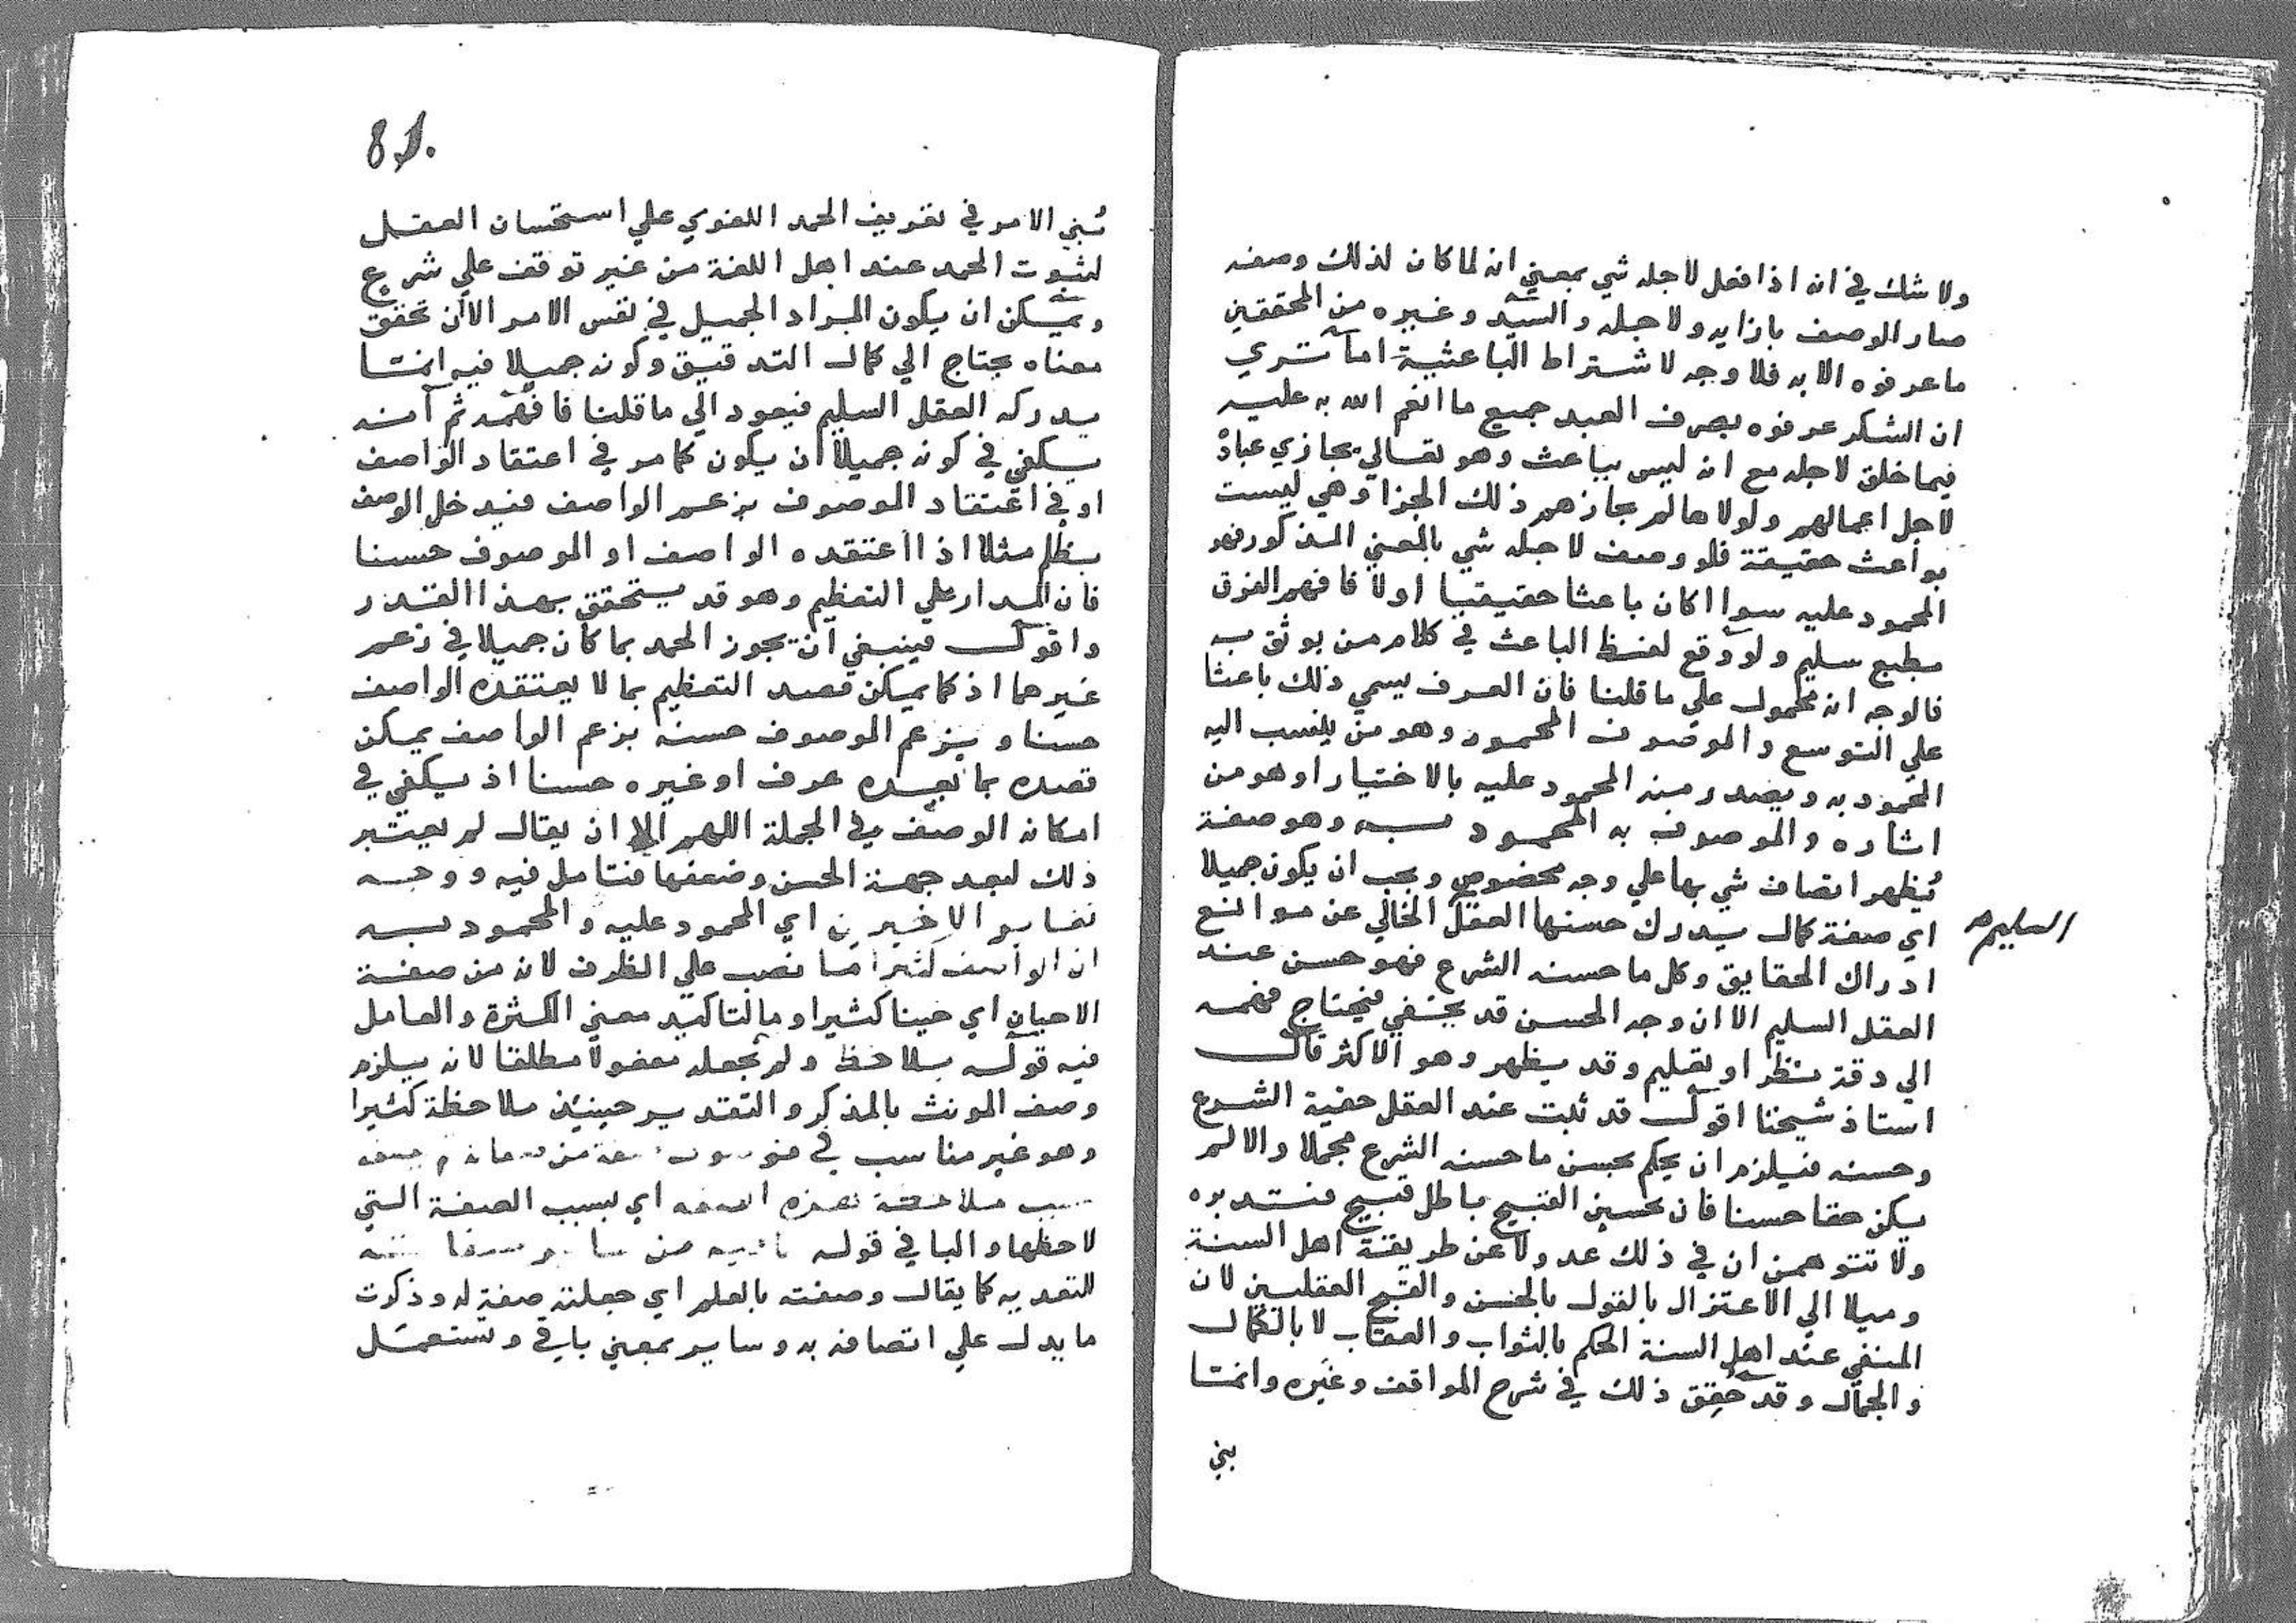 ولا شك في انه اذا فعل لاجله شي بمعني انه لما كان لذلك وصفه
صار الوصف بازايه ولاجله والسيد وغيره من المحققين
ما عرفوه الا به فلا وجه لاشتراط الباعثية اما تري
ان الشكر عرفوه بصرف العبد جميع ما انعم الله به عليه
فيما خلق لاجله مع انه ليس بباعث وهو تعالي يجازي عباده
لاجل اعمالهم ولولاها لم يجازهم ذلك الجزا وهي ليست
بواعث حقيقة فلو وصف لاجله شي بالمعني المذكور فهو
المحمود عليه سوا اكان باعثا حقيقيا اولا فافهم الفرق
بطبع سليم ولو وقع لفظ الباعث في كلام من يوثق به
فالوجه انه محمول علي ما قلنا فان العرف يسمي ذلك باعثا
علي التوسع والموصوف المحمود وهو من ينسب اليه
المحمود به ويصدر منه المحمود عليه بالاختيار او هو من
اثاره والموصوف به المحمود به وهو صفة
تُظهر اتصاف شي بها علي وجه مخصوص ويجب ان يكون جميلا
اي صفة كمال يدرك حسنها العقل الخالي عن موانع
السليم
ادراك الحقايق وكل ما حسنه الشرع فهو حسن عند
العقل السليم الا ان وجه الحسن قد يختفي فيحتاج فهمه
الي دقة نظر او تعليم وقد يظهر وهو الاكثر قال
استاذ شيخنا اقول قد ثبت عند العقل حقية الشرع
وحسنه فيلزم ان يحكم بحسن ما حسنه الشرع مجملا والا لم
يكن حقا حسنا فان تحسين القبيح باطل قبيح فتدبره
ولا تتوهمن ان في ذلك عدولا عن طريقة اهل السنة
وميلا الي الاعتزال بالقول بالحسن والقبح العقليين لان
المنفي عند اهل السنة الحكم بالثواب والعقاب لا بالكمال
والجمال وقد حُقق ذلك في شرح المواقف وغيره وانما
بني
81.
بُني الامر في تعريف الحمد اللغوي علي استحسان العقل
لثبوت الحمد عند اهل اللغة من غير توقف علي شرع
ويمكن ان يكون المراد الجميل في نفس الامر الا ان تحقق
معناه يحتاج الي كمال التدقيق وكونه جميلا فيه انما
يدركه العقل السليم فيعود الي ما قلنا فافهمه ثم انه
يكفي في كونه جميلا ان يكون كما مر في اعتقاد الواصف
او في اعتقاد الموصوف بزعم الواصف فيدخل الوصف
بظلم مثلا اذا اعتقده الواصف او الموصوف حسنا
فان المدار علي التعظيم وهو قد يتحقق بهذا القدر
واقول فينبغي ان يجوز الحمد بما كان جميلا في زعم
غيرهما اذ كما يمكن قصد التعظيم بما لا يعتقده الواصف
حسنا ويزعم الموصوف حسنه بزعم الواصف يمكن
قصده بما يعده عرف او غيره حسنا اذ يكفي في
امكانه الوصف في الجملة اللهم الا ان يقال لم يعتبر
ذلك لبعد جهة الحسن وضعفها فتامل فيه ووجه
تغاير الاخيرين اي المحمود عليه والمحمود به
ان الواصف كثيرا ما نصب علي الظرف لانه من صفة
الاحيان اي حينا كثيرا وما لتاكيد معني الكثرة والعامل
فيه قوله يلاحظ ولم نجعله مفعولا مطلقا لانه يلزم
وصف المونث بالمذكر والتقدير حينيئذ ملاحظة كثيرا
وهو غير مناسب في
ملاحظة اي بسبب الصفة التي
لاحظها والبا في قوله من
للتعديه كما يقال وصفته بالعلم اي جعلته صفة له وذكرت
ما يدل علي اتصافه به وساير بمعني باقي وتستعمل